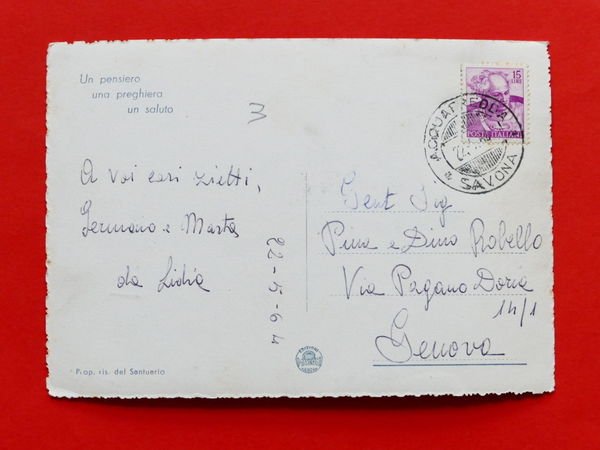 Un pensiero
una preghiera
un saluto
A voi cari zietti,
Germano e Marta
da Lidia
22-5-64
Prop. ris. del Santuario
15
LIRE
POSTE ITALIANE
ACQUAFREDDA
SAVONA
Gent Sig
Pina e Dino Robello
Via Pagano Doria
14/1
Genova